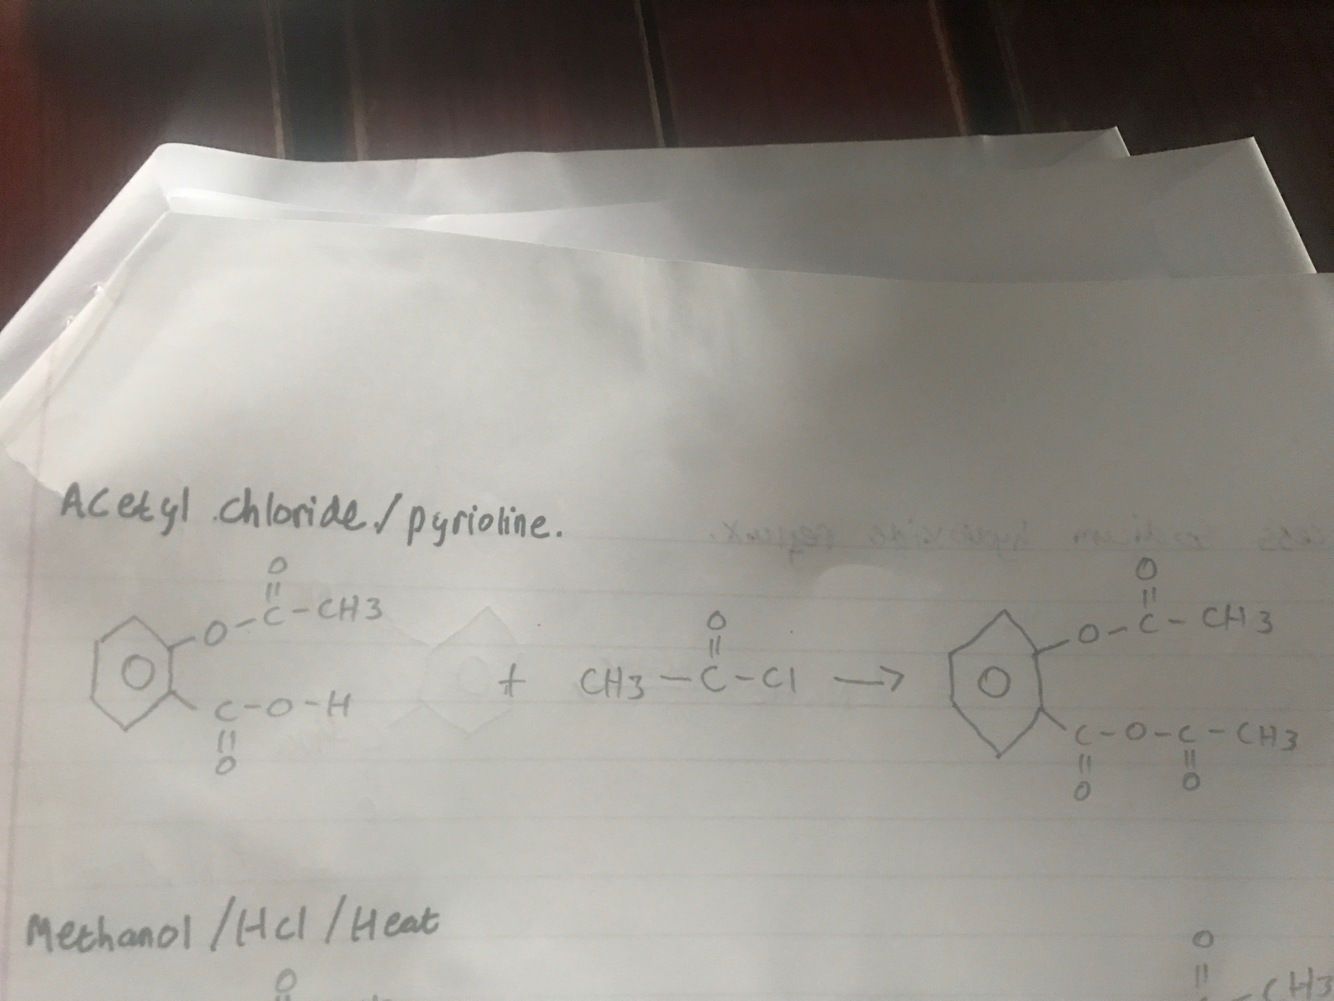 Acetyl chloride/pyridine.
O
||
O-C-CH3
C-O-H
||
O
+
O
||
CH3-C-Cl
→
O
||
O-C-CH3
C-O-C-CH3
|| ||
O O
Methanol/HCl/Heat
O
||
O
||
-CH3